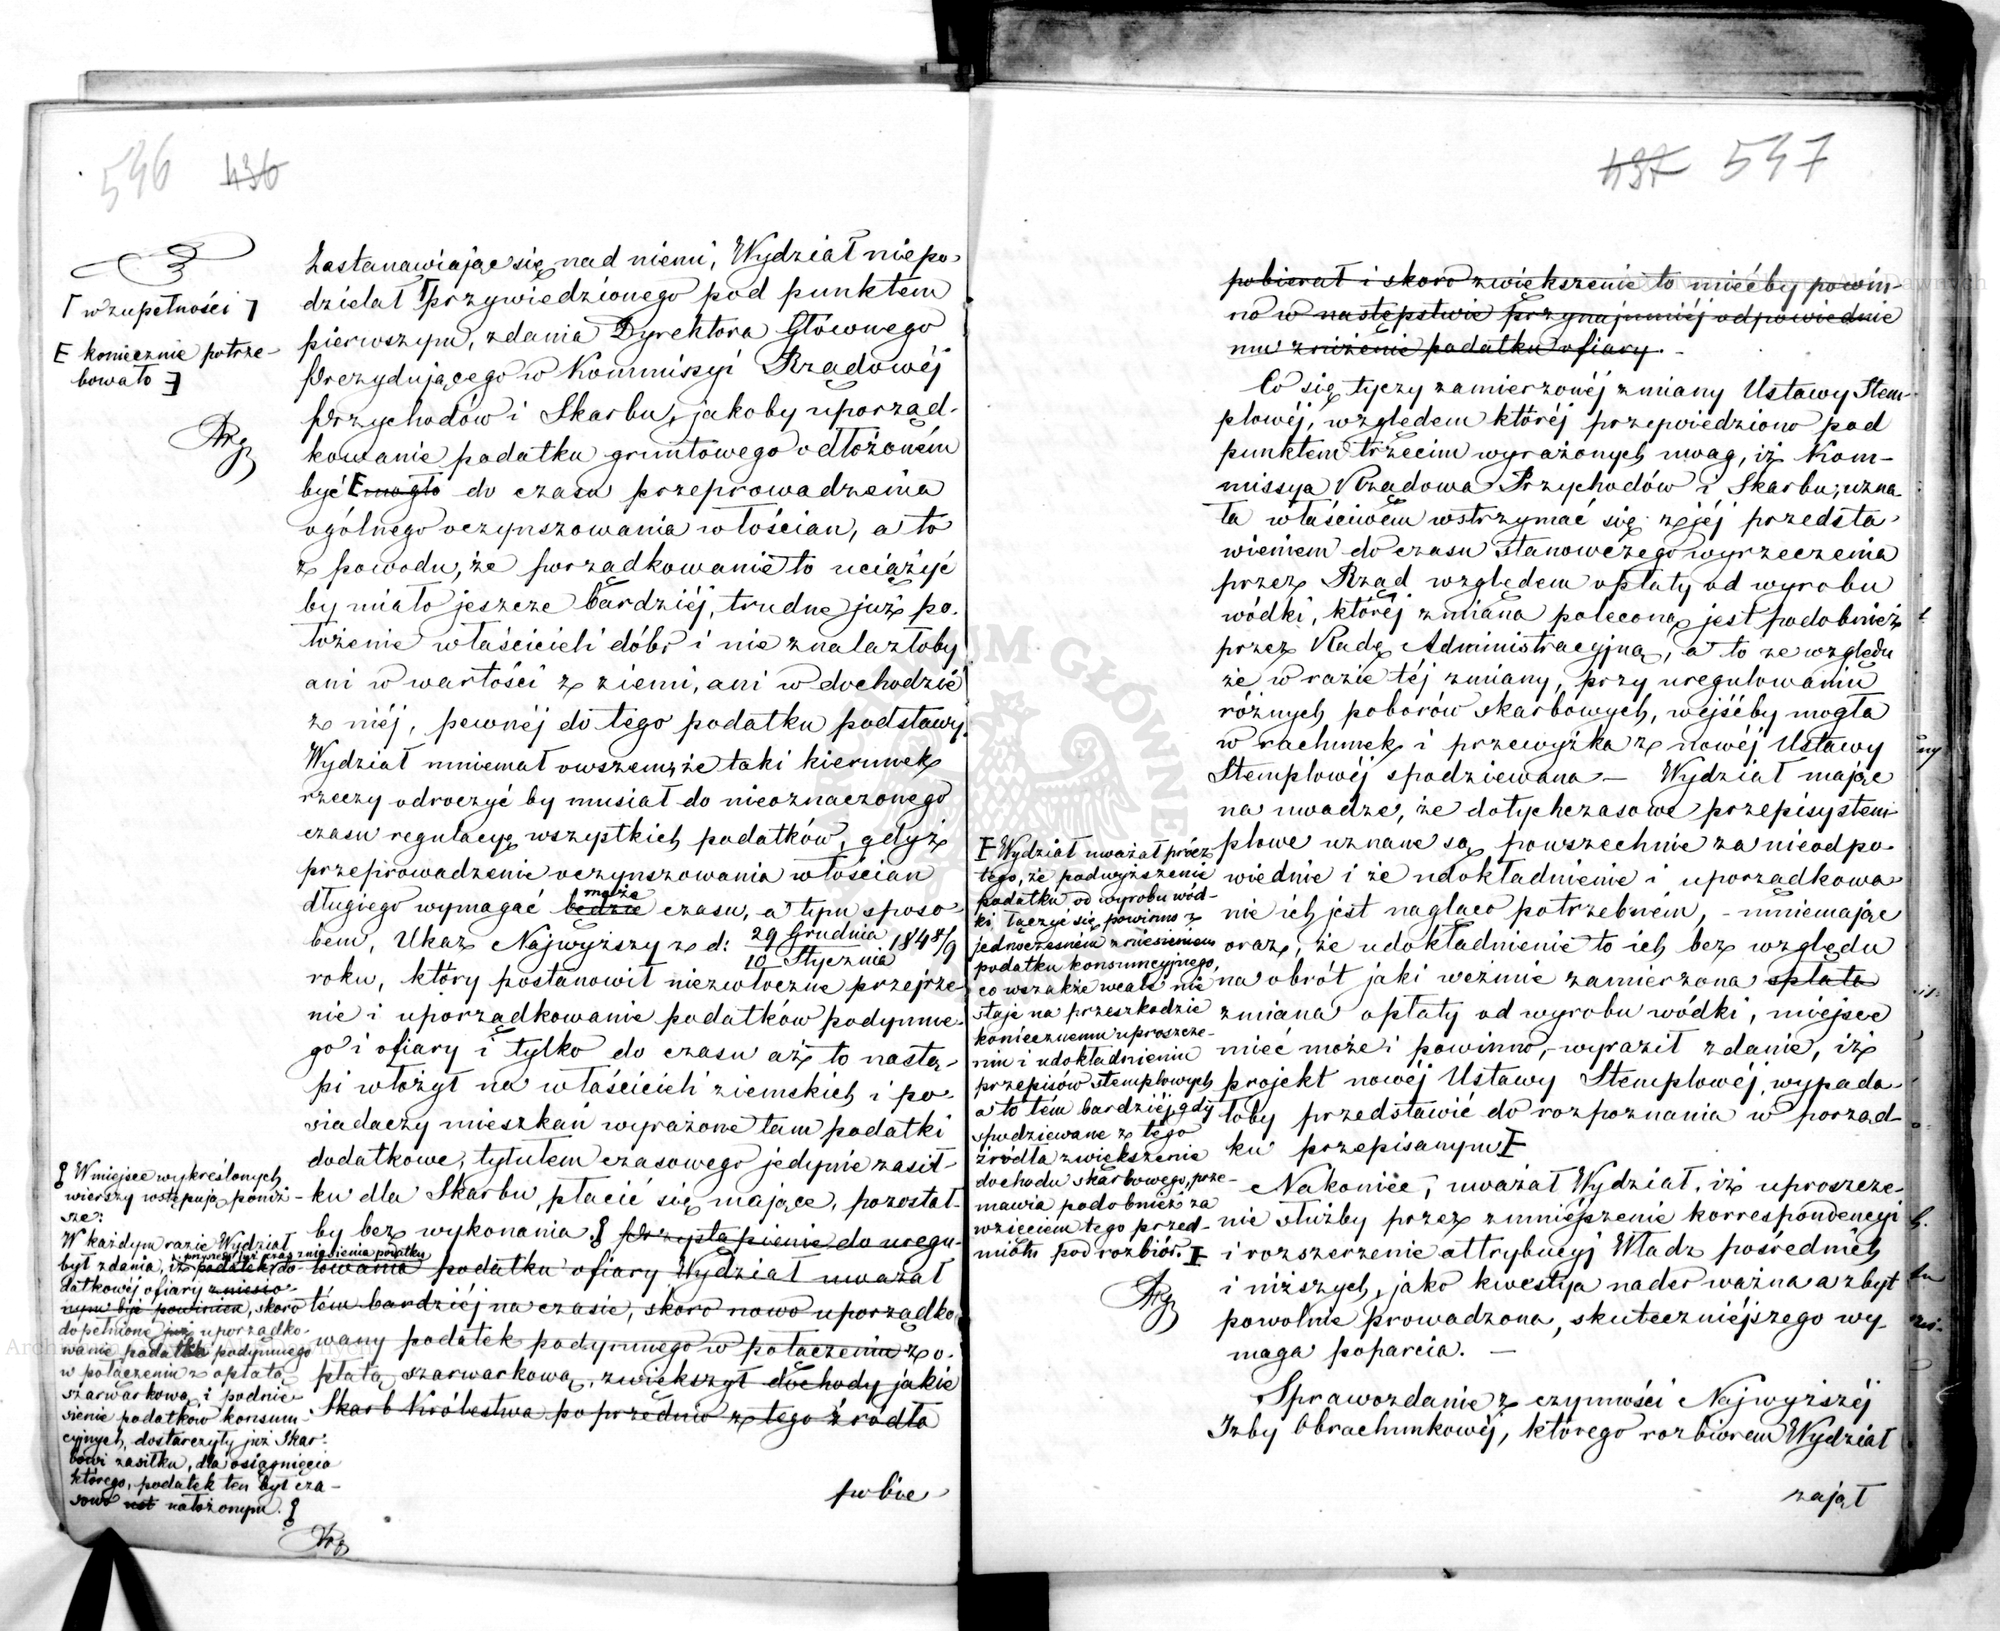 546 436
⌈ w zupełności ⌉
E koniecznie potrze-
bowało ∃
Zastanawiając się nad niemi, Wydział niepo-
dzielał ⌈ przywiedzionego pod punktem
pierwszym, zdania Dyrektora Głównego
Prezydującego w Kommissyi Rządowéj
Przychodów i Skarbu, jakoby uporząd-
kowanie podatku gruntowego odłożoném
być E mogło do czasu przeprowadzenia
ogólnego oczynszowania włościan, a to
z powodu, że porządkowanie to uciążyć
by miało jeszcze bardziéj, trudne już po-
łożenie właścicieli dóbr i nie znalazłoby
ani w wartości z ziemi, ani w dochodzie
z niéj, pewnéj do tego podatku podstawy.
Wydział mniemał owszem, że taki kierunek
rzeczy odroczyć by musiał do nieoznaczonego
czasu regulacyę wszystkich podatków, gdyż
przeprowadzenie oczynszowania włościan
może
długiego wymagać będzie czasu, a tym sposo
bem, Ukaz Najwyższy z d: 29 Grudnia / 10 Stycznia 1848/9
roku, który postanowił niezwłoczne przejrze-
nie i uporządkowanie podatków podymne-
go i ofiary i tylko do czasu aż to nastą-
pi włożył na właścicieli ziemskich i po-
siadaczy mieszkań wyrażone tam podatki
dodatkowe, tytułem czasowego jedynie zasił-
ku dla Skarbu, płacić się mające, pozostał-
by bez wykonania. Przystąpienie do uregu-
lowania podatku ofiary Wydział uważał
tém bardziéj na czasie, skoro nowo uporządko-
wany podatek podymnego w połączeniu z o-
płatą szarwarkową, zwiększył dochody jakie
Skarb Królestwa poprzednio z tego źródła
pobie
W miejsce wykreślonych
wierszy wstępują poniż-
sze:
W każdym razie Wydział
był zdania, iż podatek do
datkowéj ofiary zniesio-
nym być powinien, skoro
dopełnione już uporządko-
wanie podatku podymnego
w połączeniu z opłatą
szarwarkową i podnie-
sienie podatków konsum-
cyjnych, dostarczyły już Skar-
bowi zasiłku, dla osiągnięcia
którego, podatek ten był cza-
sowo nałożonym.
437 547
pobierał i skoro zwiększenie to miećby powin-
no w następstwie przynajmniéj odpowiednie
mu zniżenie podatku ofiary. -
Co się tyczy zamierzonéj zmiany Ustawy Stem-
plowéj, względem któréj przepowiedziono pod
punktem trzecim wyrażonych uwag, iż Kom-
missya Rządowa Przychodów i Skarbu, uzna
ła właściwém wstrzymać się z jéj przedsta-
wieniem do czasu stanowczego wyrzeczenia
przez Rząd względem opłaty od wyrobu
wódki, któréj zmiana poleconą jest podobnież
przez Radę Administracyjną, a to ze względu
że w razie téj zmiany, przy uregulowaniu
różnych poborów skarbowych, wejśćby mogła
w rachunek i przewyżka z nowéj Ustawy
Stemplowéj spodziewana - Wydział mając
na uwadze, że dotychczasowe przepisy stem-
plowe uznane są powszechnie za nieodpo-
wiednie i że udokładnienie i uporządkowa
nie ich jest nagląco potrzebném, - mniemając
oraz, że udokładnienie to ich bez względu
na obrót jaki weźmie zamierzona opłata
zmiana opłaty od wyrobu wódki, miejsce
mieć może i powinno, - wyraził zdanie, iż
projekt nowéj Ustawy Stemplowéj, wypada-
łoby przedstawić do rozpoznania w porząd-
ku przepisanym E
E Wydział uważał prócz
tego, że podwyższenie
podatku od wyrobu wód-
ki łączyć się powinno z
jednoczesném zniesieniem
podatku konsumcyjnego,
co wszakże wcale nie
staje na przeszkodzie
koniecznemu uproszcze-
niu i udokładnieniu
przepisów stemplowych
a to tém bardziéj, gdy
spodziewane z tego
źródła zwiększenie
dochodu skarbowego, prze-
mawia podobnież za
wzięciem tego przed-
miotu pod rozbiór. E
Nakoniec, uważał Wydział, iż uproszcze-
nie służby przez zmniejszenie korrespondencyi
i rozszerzenie attrybucyj Władz pośrednich
i niższych, jako kwestya nader ważna a zbyt
powolnie prowadzona, skuteczniéjszego wy-
maga poparcia. -
Sprawozdanie z czynności Najwyższéj
Izby Obrachunkowéj, którego rozbiorem Wydział
zajął